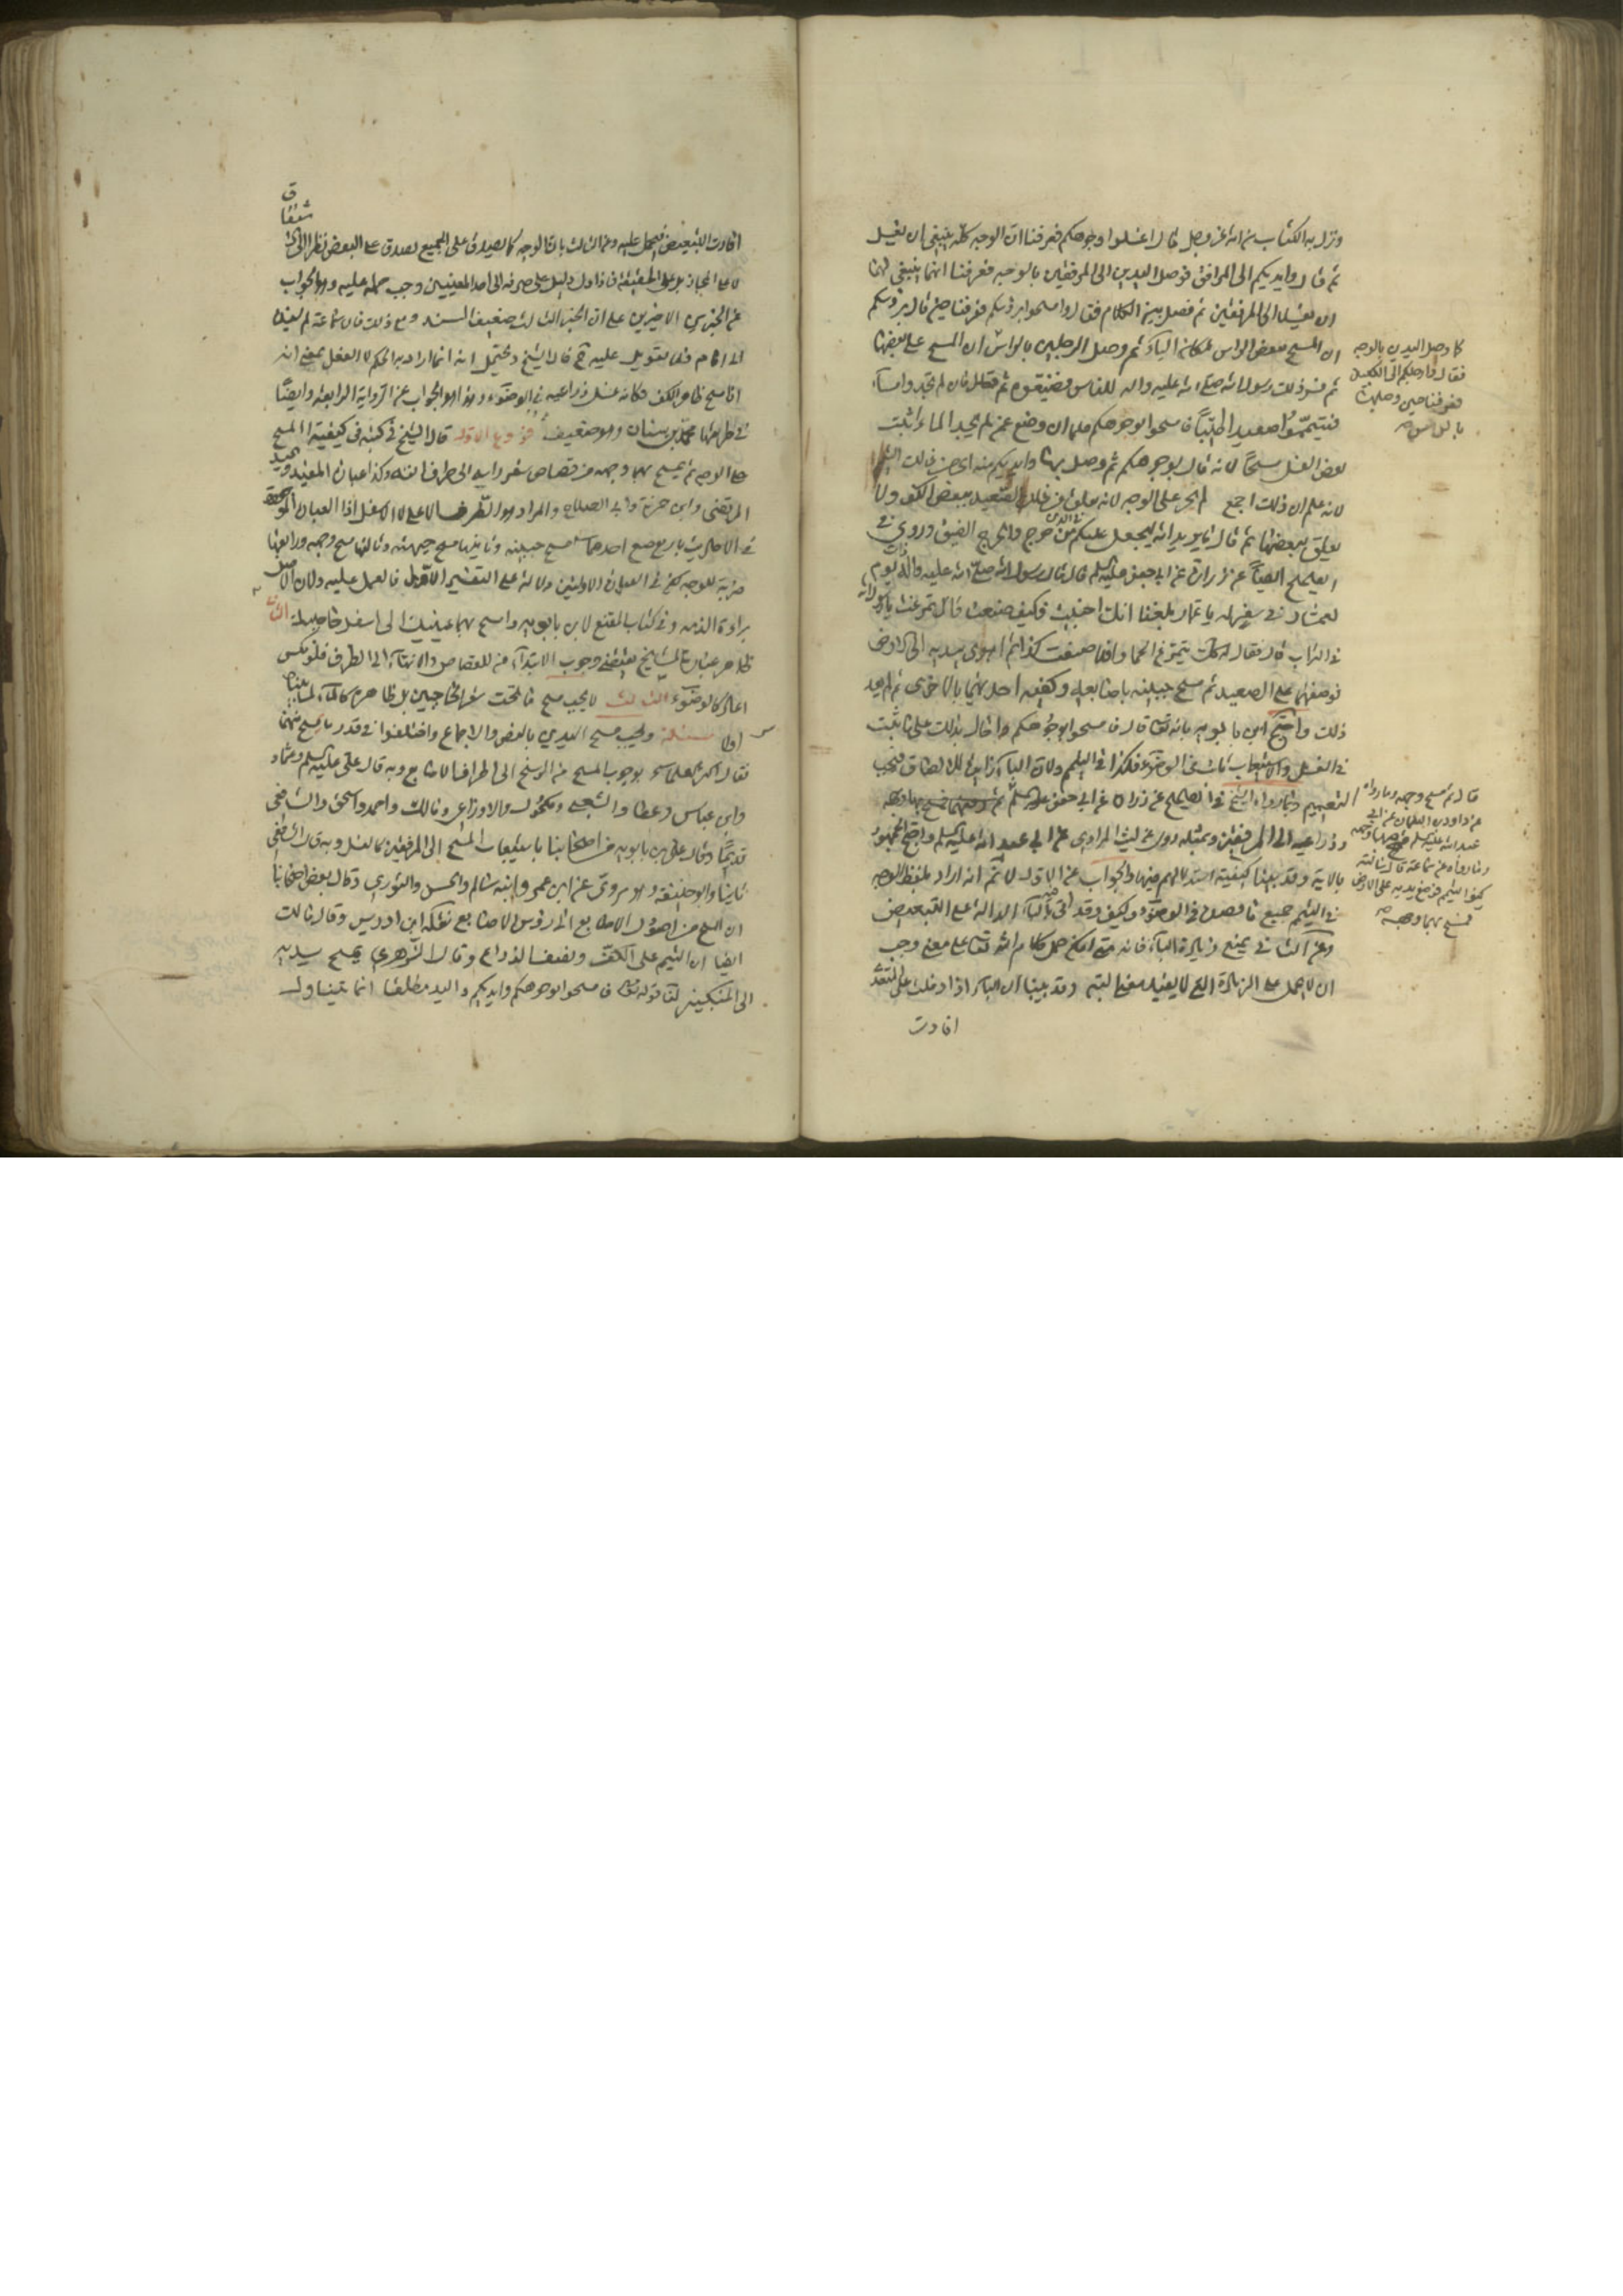 ونزل به الكتاب من الله عز وجل قال اغسلوا وجوهكم فعرفنا ان الوجه كله ينبغي ان يغسل
ثم قال وايديكم الى المرافق فوصل اليدين الى المرفقين بالوجه فعرفنا انهما ينبغي لهما
ان يغسلا الى المرفقين ثم فصل بين الكلام فقال وامسحوا برؤسكم فعرفنا حين قال برؤسكم
ان المسح ببعض الراس لمكان الباء ثم وصل الرجلين بالراس ان المسح على بعضها
ثم فسر ذلك رسول الله صلى الله عليه واله للناس فضيعوه ثم قال فان لم تجدوا ماء
فتيمموا صعيدا طيبا فامسحوا بوجوهكم فلما ان وضع عمن لم يجد الماء اثبت
بعض الغسل مسحا لانه قال بوجوهكم ثم وصل بها وايديكم منه اى من ذلك التيمم
لانه علم ان ذلك اجمع لم يجر على الوجه لانه يعلق من ذلك الصعيد ببعض الكف ولا
يعلق ببعضها ثم قال ما يريد الله ليجعل عليكم في الدين من حرج والحرج الضيق وروى في
الصحيح ايضا عن زرارة عن ابي جعفر عليه السلم قال قال رسول الله صلى الله عليه واله ذات يوم
لعمار في سفر له يا عمار بلغنا انك اجنبت فكيف صنعت قال تمرغت يا رسول الله
في التراب قال فقال له كذلك يتمرغ الحمار افلا صنعت كذا ثم اهوى بيديه الى الارض
فوضعهما على الصعيد ثم مسح جبينه باصابعه وكفيه احدهما بالاخرى ثم لم يعد
ذلك واحتج ابن بابويه بانه تعالى قال فامسحوا بوجوهكم
في الغسل والاستيعاب ثابت في الوضوء فكذا في التيمم ولان الباء زائدة للالصاق فيجب
التعميم وبما رواه الشيخ في الصحيح عن زرارة عن ابي جعفر عليه السلم
وذراعيه الى المرفقين وبمثله روى عن ليث المرادي عن ابي عبد الله عليه السلم واحتج الجمهور
بالاية وقد بينا كيفية استدلالهم منها والجواب عن الاول لا نم انه اراد بلفظ الوجه
في التيمم جميع ما فصل في الوضوء وكيف وقد اتى فيه بالباء الدالة على التبعيض
وعن الثاني بمنع زيادة الباء فانه متى امكن حمل كلام الله تعالى على معنى وجب
ان لا يحمل على الزيادة التي لا يفيد معنى البتة وقد بينا ان الباء اذا دخلت على المتعدي
افادت
كما وصل اليدين بالوجه
فقال وارجلكم الى الكعبين
فعرفنا حين وصلهما
بالراس صح
قال ثم مسح وجهه وما رواه
عن داود بن النعمان عن ابي
عبد الله عليه السلم فمسح بهما وجهه
وما رواه عن سماعة قال سالته
كيف التيمم فوضع يديه على الارض
فمسح بهما وجهه صح
افادت التبعيض فيحمل عليه وعن الثالث بان الوجه كما يصدق على الجميع يصدق على البعض نظرا الى
لا على المجاز بل على الحقيقة فاذا دل دليل على صرفه الى احد المعنيين وجب حمله عليه وهو الجواب
عن الخبرين الاخيرين على ان الخبر الثالث ضعيف السند ومع ذلك فان سماعة لم يسنده
الى امام فلا تعويل عليه ثم قال الشيخ ويحتمل انه انما اراد به الحكم لا الفعل بمعنى انه
اذا مسح ظاهر الكف فكانه غسل ذراعيه في الوضوء وهذا هو الجواب عن الرواية الرابعة وايضا
في طريقها محمد بن سنان وهو ضعيف فروع الاول قال الشيخ في كتبه في كيفية المسح
على الوجه ثم يمسح بهما وجهه من قصاص شعر راسه الى طرف انفه وكذا عبارة المفيد والسيد
المرتضى وابن حمزة وابي الصلاح والمراد هو الطرف الاعلى لا الاسفل اذا العبارة الموجودة
في الاحاديث باربع صيغ احدها مسح جبينه وثانيها مسح جبهته وثالثها مسح وجهه ورابعها
براءة الذمة وفي كتاب المقنع لابن بابويه وامسح بهما عينيك الى اسفل حاجبيك الثاني
ظاهر عبارة المشايخ يقتضي وجوب الابتداء من القصاص والانتهاء الى الطرف فلو نكس
اعاد كالوضوء الثالث لا يجب مسح ما تحت شعر الحاجبين بل ظاهره كالماء لما بيناه
اولا مسئلة ويجب مسح اليدين بالنص والاجماع واختلفوا في قدر ما يمسح منهما
فقال اكثر علمائنا بوجوب المسح من الرسغ الى اطراف الاصابع وبه قال علي عليه السلم وعمار
وابن عباس وعطا والشعبي ومكحول والاوزاعي ومالك واحمد واسحق والشافعي
قديما وقال علي بن بابويه من اصحابنا باستيعاب المسح الى المرفقين كالغسل وبه قال الشافعي
ثانيا وابو حنيفة وهو مروي عن ابن عمر وابنه سالم والحسن والثوري وقال بعض اصحابنا
ان المسح من اصول الاصابع الى رؤس الاصابع نقله ابن ادريس وقال مالك
ايضا ان التيمم على الكف ونصف الذراع وقال الزهري يمسح يديه
الى المنكبين لنا قوله تعالى فامسحوا بوجوهكم وايديكم واليد مطلقا انما يتناول